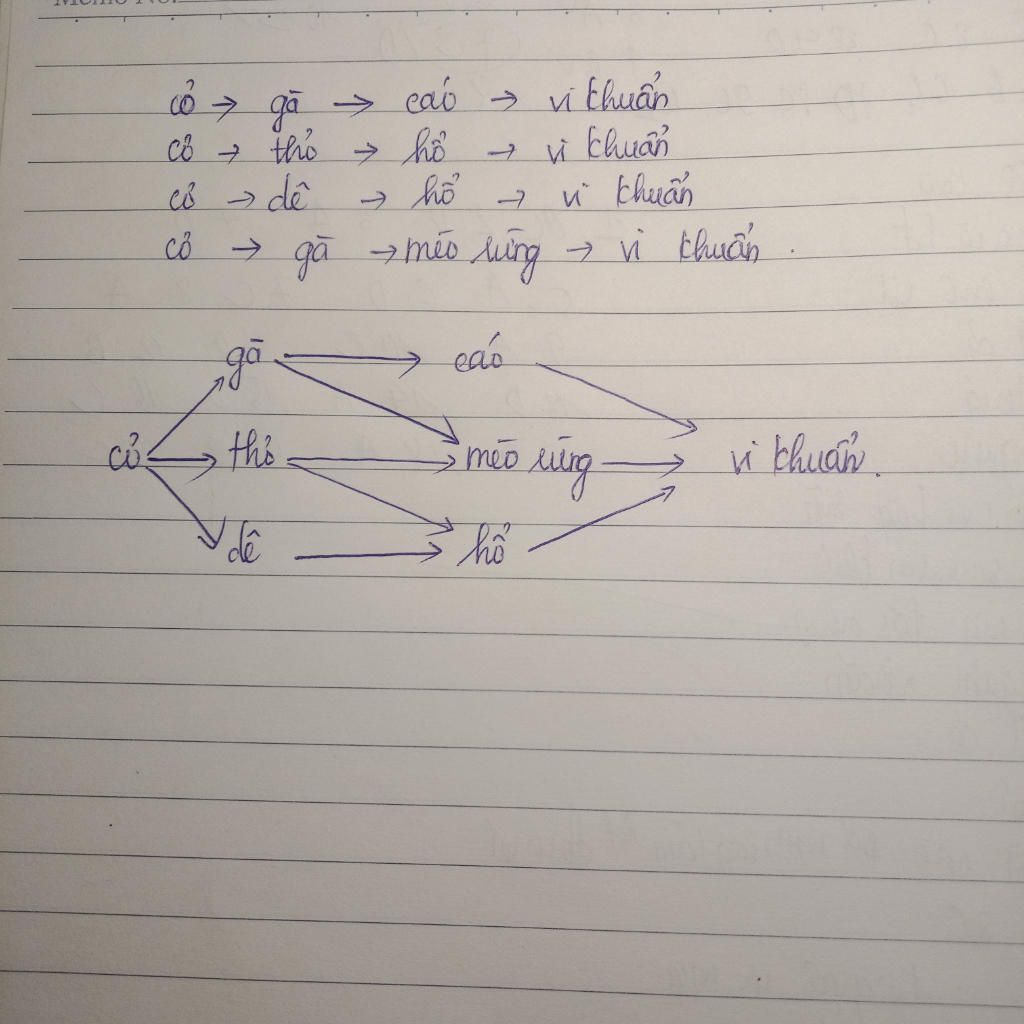 Memo No.
cỏ → gà → cáo → vi khuẩn
cỏ → thỏ → hổ → vi khuẩn
cỏ → dê → hổ → vi khuẩn
cỏ → gà → mèo rừng → vi khuẩn.
gà → cáo
cỏ → thỏ → mèo rừng → vi khuẩn.
dê → hổ